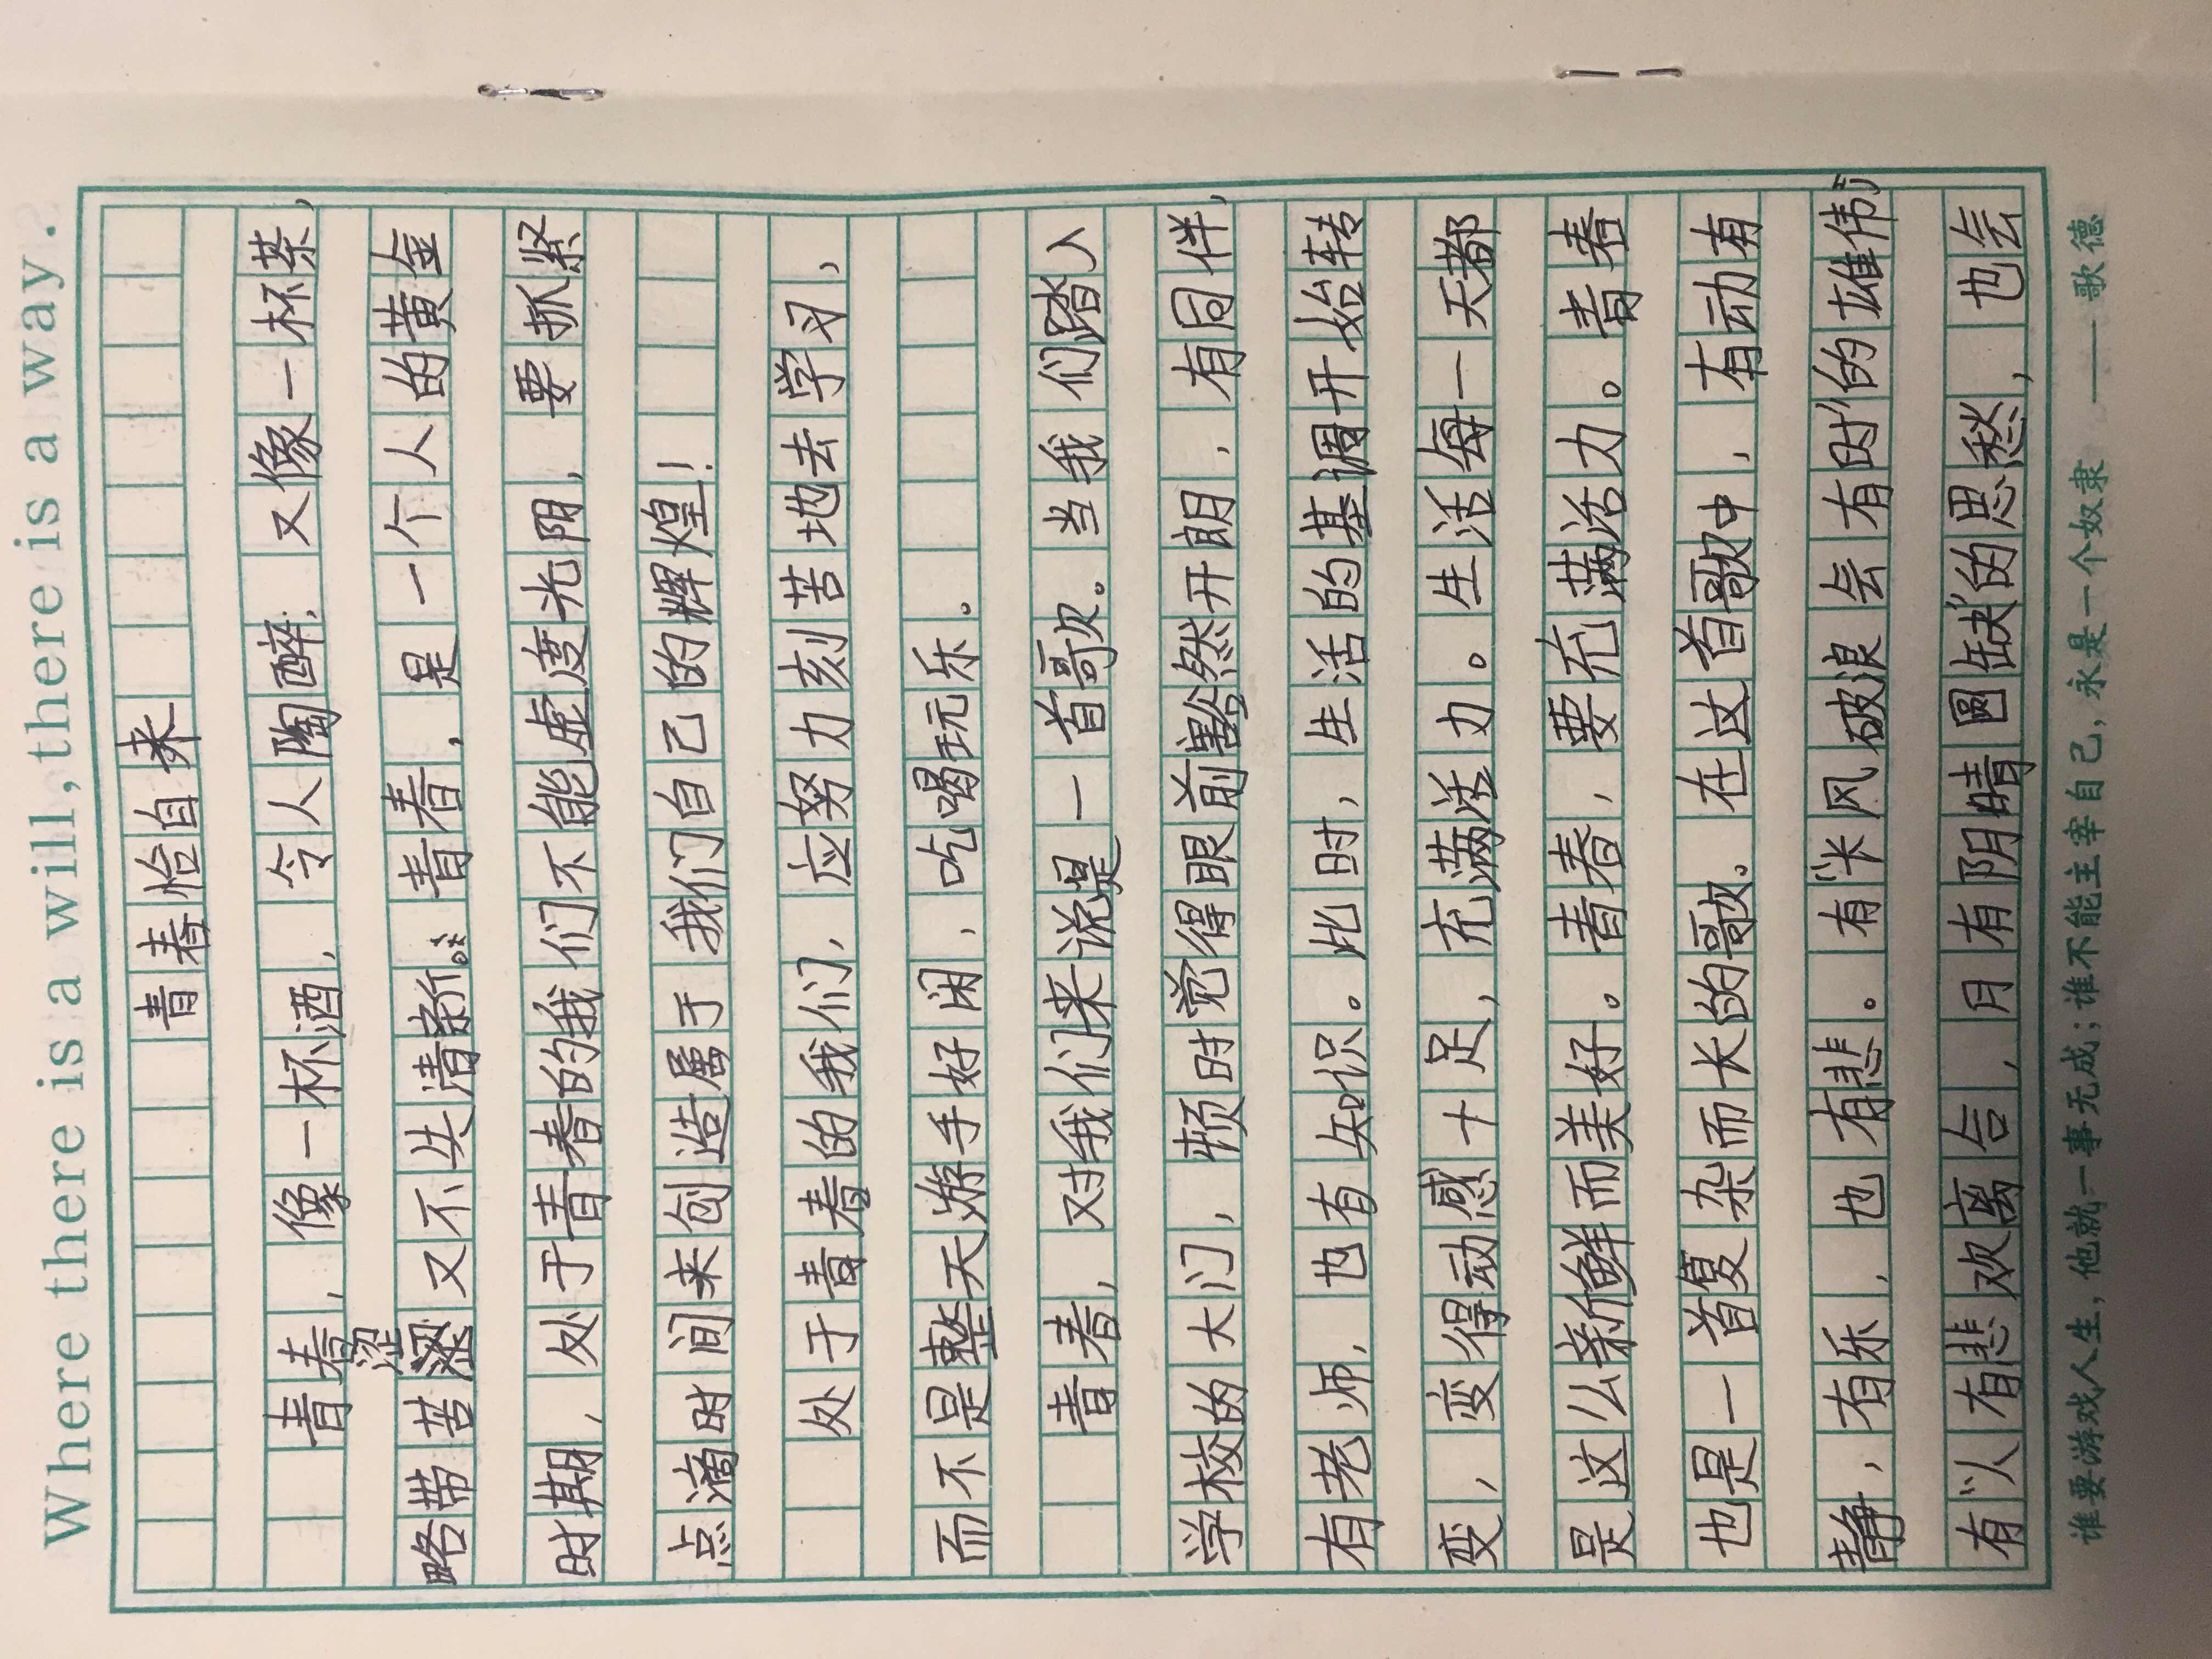 Where there is a will, there is a way.
青春恰自来
青春，像一杯酒，令人陶醉，又像一杯茶，
略带苦涩又不失清新。青春，是一个人的黄金
时期，处于青春的我们不能虚度光阴，要抓紧
点滴时间来创造属于我们自己的辉煌！
处于青春的我们，应努力刻苦地去学习，
而不是整天游手好闲，吃喝玩乐。
青春，对我们来说是一首歌。当我们踏入
学校的大门，顿时觉得眼前豁然开朗，有同伴，
有老师，也有知识。此时，生活的基调开始转
变，变得动感十足，充满活力。生活每一天都
是这么新鲜而美好。青春，要充满活力。青春
也是一首复杂而长的歌。在这首歌中，有动有
静，有乐，也有悲。有“长风破浪会有时”的雄伟，
有“人有悲欢离合，月有阴晴圆缺”的思愁，也会
谁要游戏人生，他就一事无成；谁不能主宰自己，永是一个奴隶。——歌德